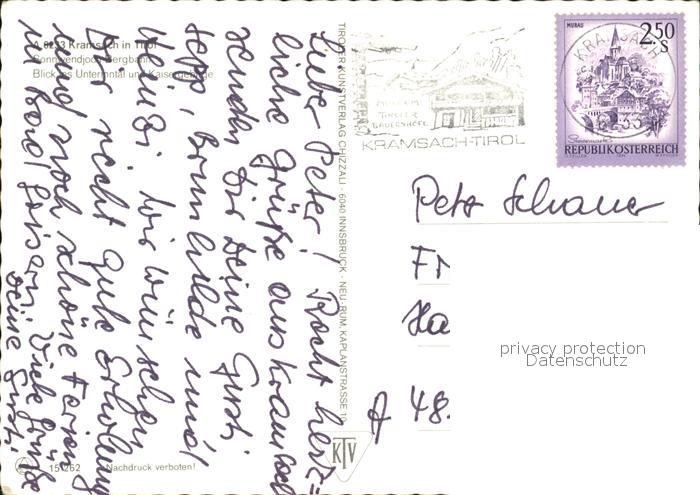 A 6233 Kramsach in Tirol
Sonnwendjoch-Bergbahn
Blick ins Unterinntal und Kaisergebirge
Lieber Peter! Recht herz=
liche Grüße aus Kramsach
senden Dir Deine Gusti,
Sepp, Brunhilde und
Heinzi. Wir wünschen
Dir recht gute Erholung
und noch schöne Ferien
in Bad Goisern. Viele Grüße
Deine Gusti
15 262 Nachdruck verboten!
TIROLER KUNSTVERLAG CHIZZALI · 6040 INNSBRUCK · NEU-RUM, KAPLANSTRASSE 12
KTV
MUSEUM
TIROLER
BAUERNHÖFE
KRAMSACH-TIROL
MURAU
2.50
S
KRAMSACH
REPUBLIK ÖSTERREICH
Peter Schauer
Ha
A 48.
privacy protection
Datenschutz